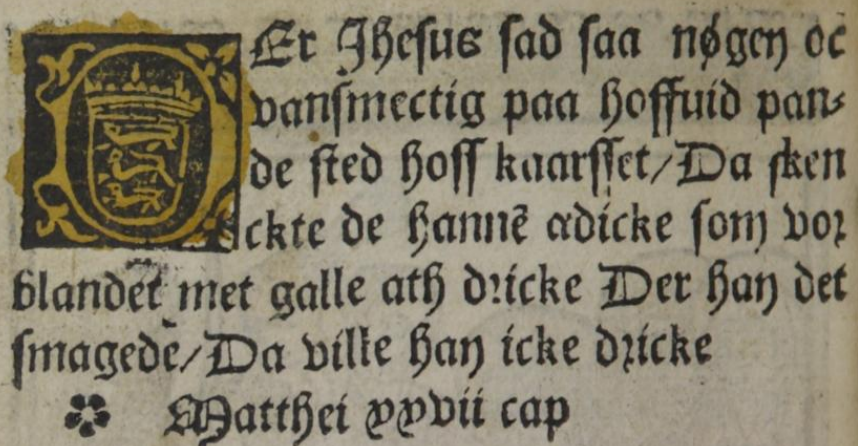 DEr Jhesus sad saa nøgen oc
vansmectig paa hoffuid pan⸗
de sted hoss kaarsset/Da sken
ckte de hannē ædicke som vor
blandet met galle ath dricke Der han det
smagede/Da ville han icke dricke
Matthei xxvii cap